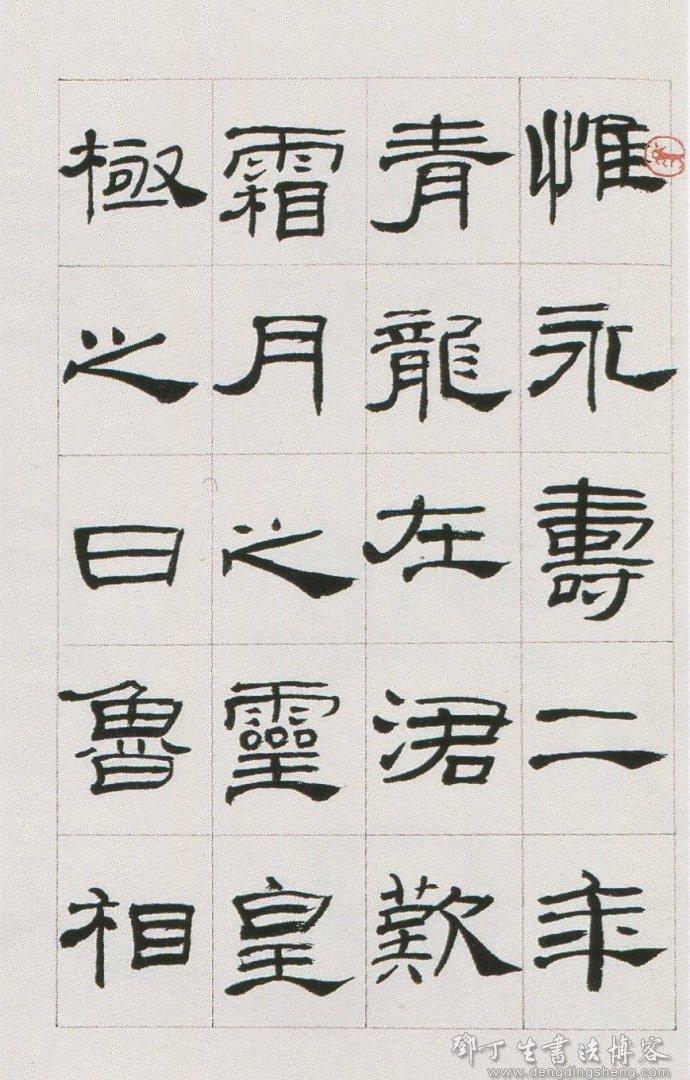 惟永壽二年
青龍在涒歎
霜月之靈皇
極之日魯相
鄧丁生書法博客
www.dengdingsheng.com